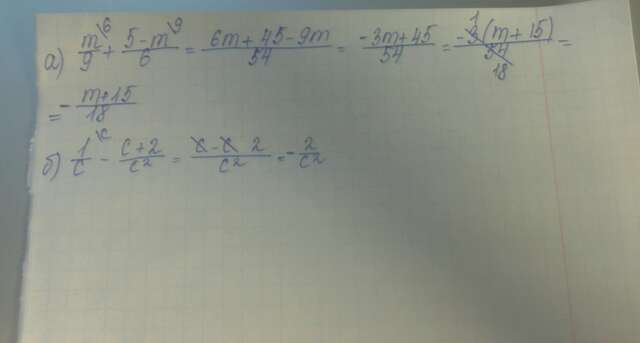 а) m/9^6 + (5-m)/6^9 = (6m+45-9m)/54 = (-3m+45)/54 = (-3^1(m+15))/54_18 =
= -(m+15)/18
б) 1/c^c - (c+2)/c² = (c-c 2)/c² = -2/c²